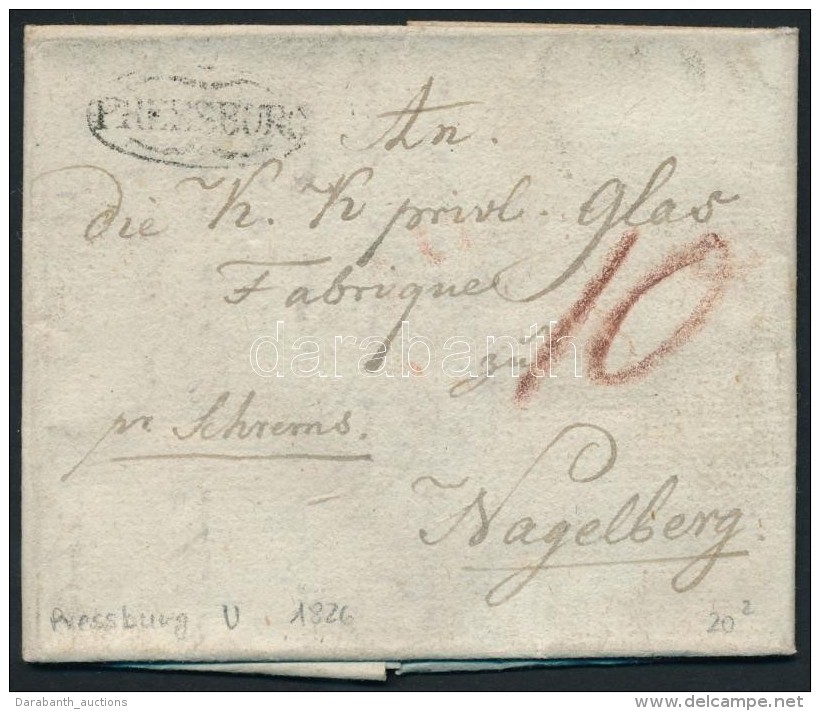 PRESSBURG
An.
die K. K privl. Glas
Fabrique
10
darabanth
zu
pr Schrems.
Nagelberg.
Pressburg V 1826
20²
Darabanth_auctions
www.delcampe.net